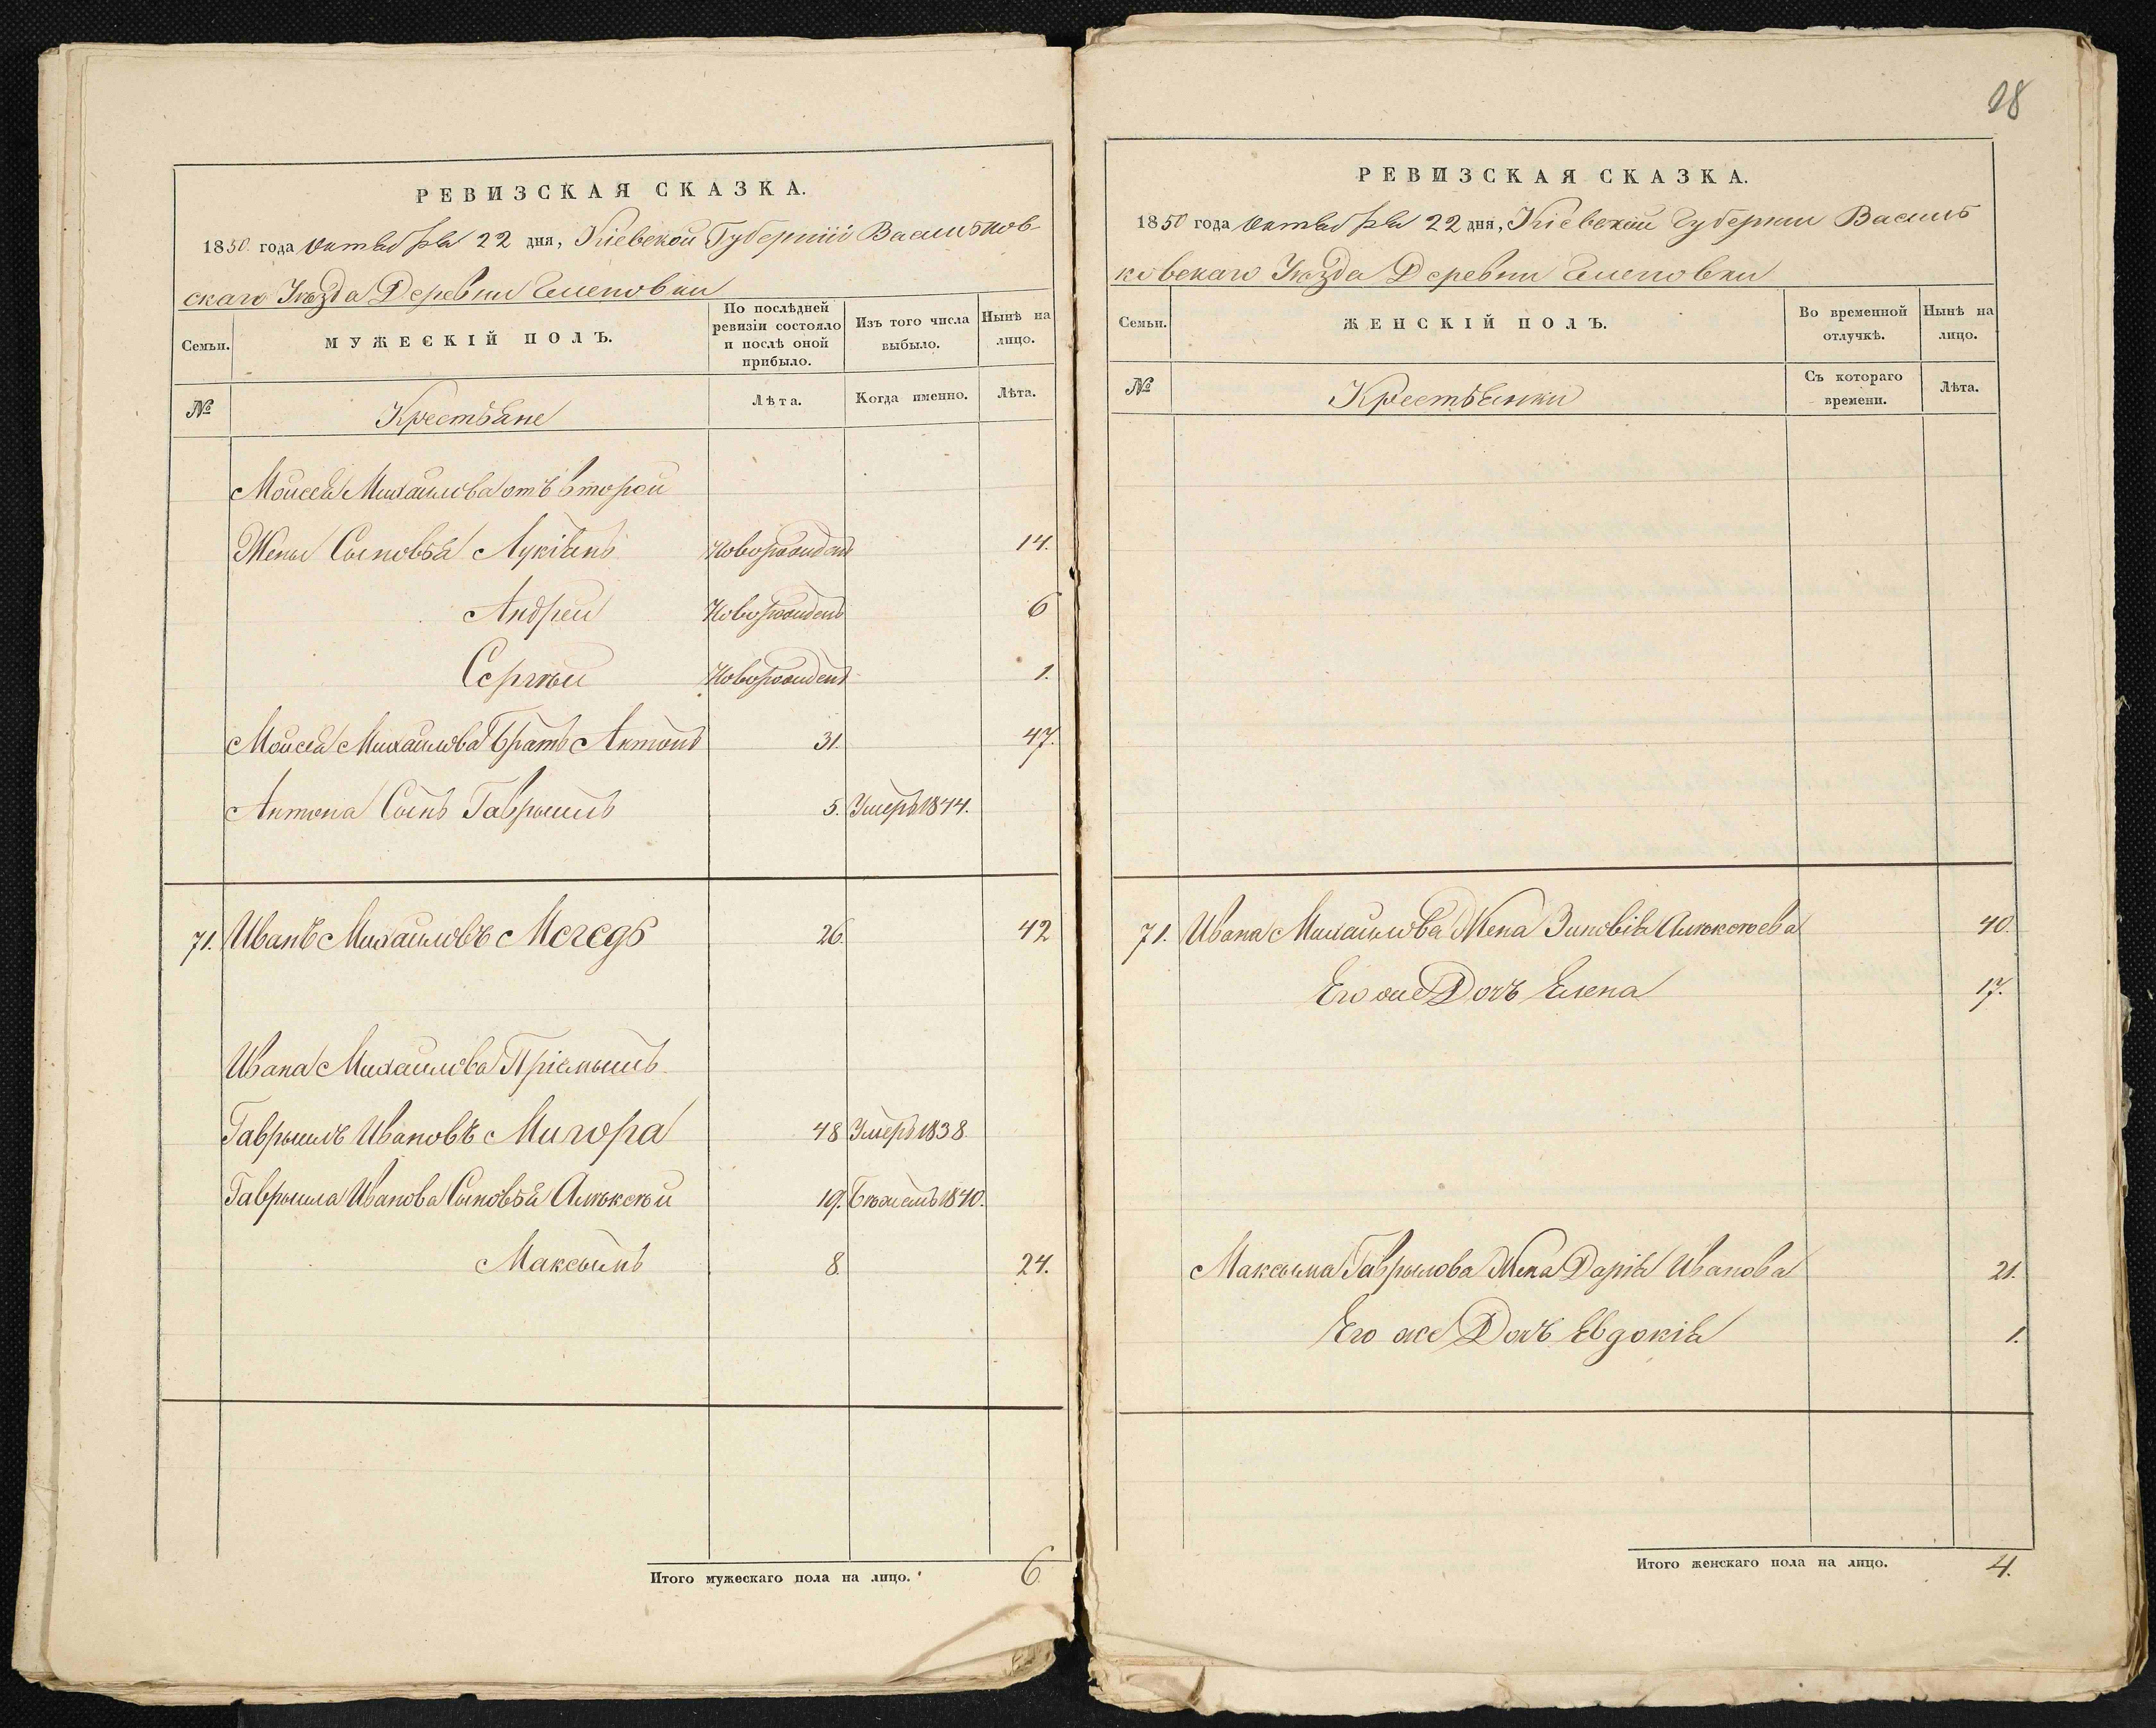 РЕВИЗСКАЯ СКАЗКА.
1850. года Октября 22 дня, Кіевской Губерніи Васильков-
скаго Уѣзда Деревни Еленовки
Семьи.
МУЖЕСКІЙ ПОЛЪ.
По послѣдней
ревизіи состояло
и послѣ оной
прибыло.
Изъ того числа
выбыло.
Нынѣ на
лицо.
№
Крестьяне
Лѣта.
Когда именно.
Лѣта.
Моисея Михайлова отъ второй
Жены Сыновья Лукіянъ Новорожденъ 14.
Андрей Новорожденъ 6
Сергѣй Новорожденъ 1.
Моисея Михайлова Братъ Антонъ 31. 47.
Антона Сынъ Гаврыилъ 5. Умеръ 1844.
71. Иванъ Михайловъ Мегедь 26. 42
Ивана Михайлова Пріемышъ
Гаврыилъ Ивановъ Мигора 48 Умеръ 1838.
Гаврыила Иванова Сыновья Алѣксѣй 19. Бѣжалъ 1840.
Максымъ 8. 24.
Итого мужескаго пола на лицо. 6.
28
РЕВИЗСКАЯ СКАЗКА.
1850 года Октября 22 дня, Кіевской Губерніи Василь
ковскаго Уѣзда Деревни Еленовки
Семьи.
ЖЕНСКІЙ ПОЛЪ.
Во временной
отлучкѣ.
Нынѣ на
лицо.
№
Крестьянки
Съ котораго
времени.
Лѣта.
71. Ивана Михайлова Жена Зиновія Алѣксѣева 40.
Его же Дочь Елена 17.
Максыма Гаврылова Жена Дарія Иванова 21.
Его же Дочь Евдокія 1.
Итого женскаго пола на лицо. 4.